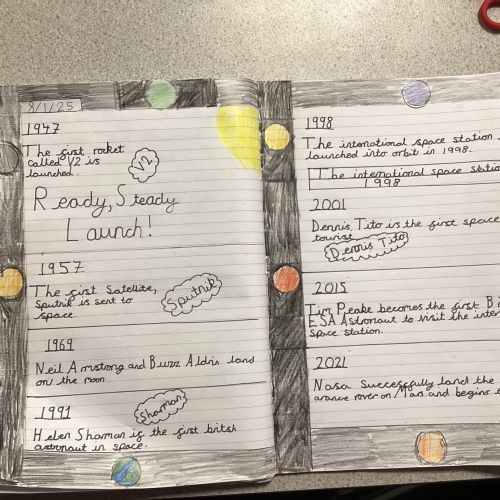 8/1/25
1947
The first rocket
called V2 is
launched.
V2
Ready, Steady
Launch!
1957
The first Satellite,
Sputnik is sent to
space.
Sputnik
1969
Neil Armstrong and Buzz Aldrin land
on the moon
1991
Sharman
Helen Sharman is the first british
astronaut in space.
1998
The international space station
launched into orbit in 1998.
The international space
1998
2001
Dennis Tito is the first space
tourist
Dennis Tito
2015
Tim Peake becomes the first
ESA Astronaut to visit the
Space station.
2021
Nasa Successfully land the
rover on Mars and begins